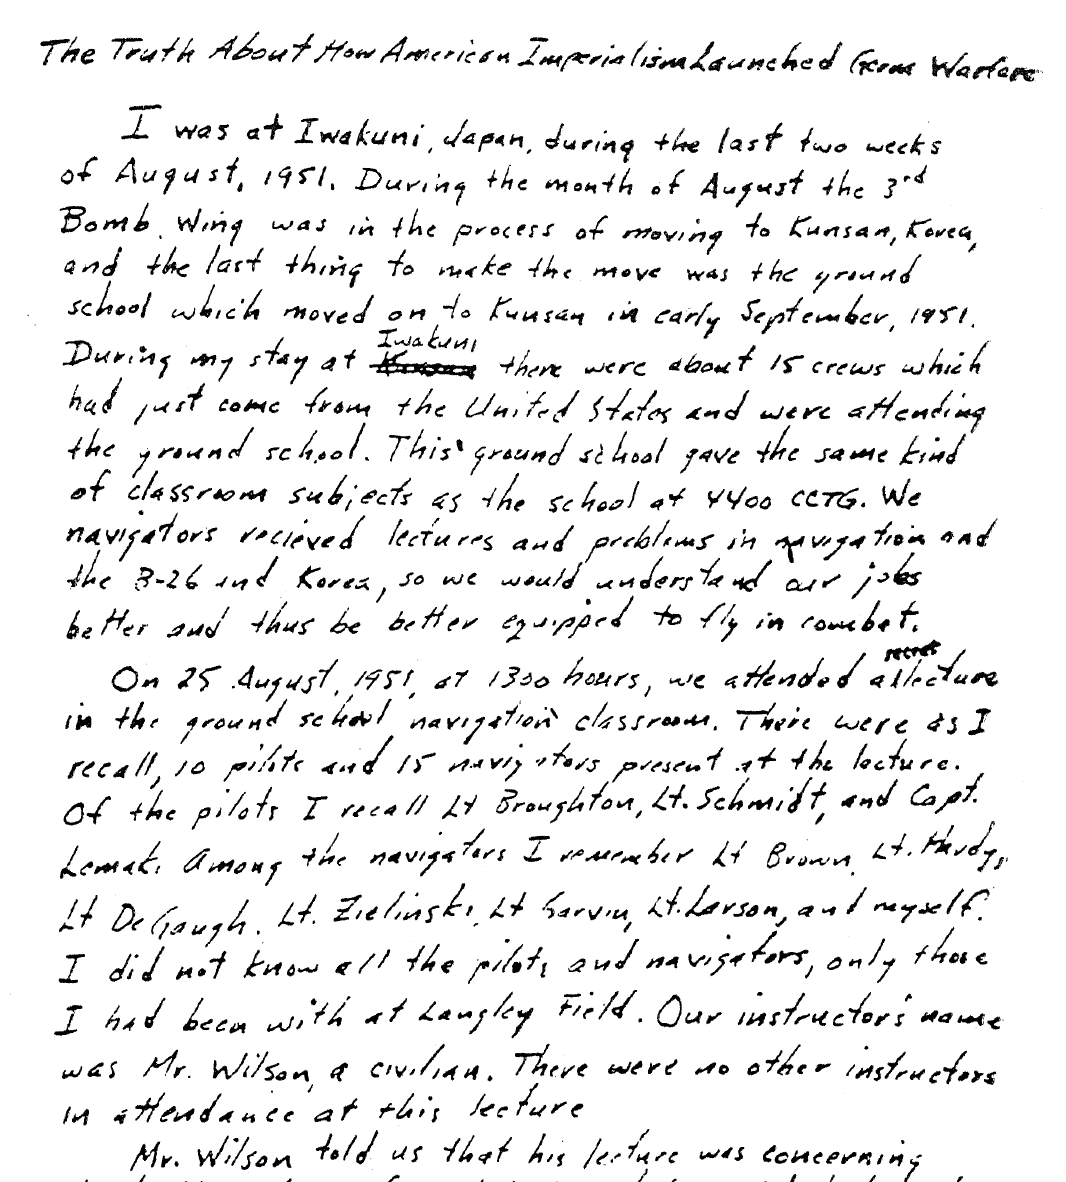 The Truth About How American Imperialism Launched Germ Warfare
I was at Iwakuni, Japan, during the last two weeks
of August, 1951. During the month of August the 3rd
Bomb Wing was in the process of moving to Kunsan, Korea,
and the last thing to make the move was the ground
school which moved on to Kunsan in early September, 1951.
Iwakuni
During my stay at Kunsan there were about 15 crews which
had just come from the United States and were attending
the ground school. This ground school gave the same kind
of classroom subjects as the school at 4400 CCTG. We
navigators recieved lectures and problems in navigation and
the B-26 and Korea, so we would understand our jobs
better and thus be better equipped to fly in combat.
secret
On 25 August, 1951, at 1300 hours, we attended a lecture
in the ground school navigation classroom. There were as I
recall, 10 pilots and 15 navigators present at the lecture.
Of the pilots I recall Lt Broughton, Lt. Schmidt, and Capt.
Lemak. Among the navigators I remember Lt Brown, Lt. Hardy,
Lt DeGaugh, Lt. Zielinski, Lt Garvin, Lt. Larson, and myself.
I did not know all the pilots and navigators, only those
I had been with at Langley Field. Our instructor's name
was Mr. Wilson, a civilian. There were no other instructors
in attendance at this lecture
Mr. Wilson told us that his lecture was concerning